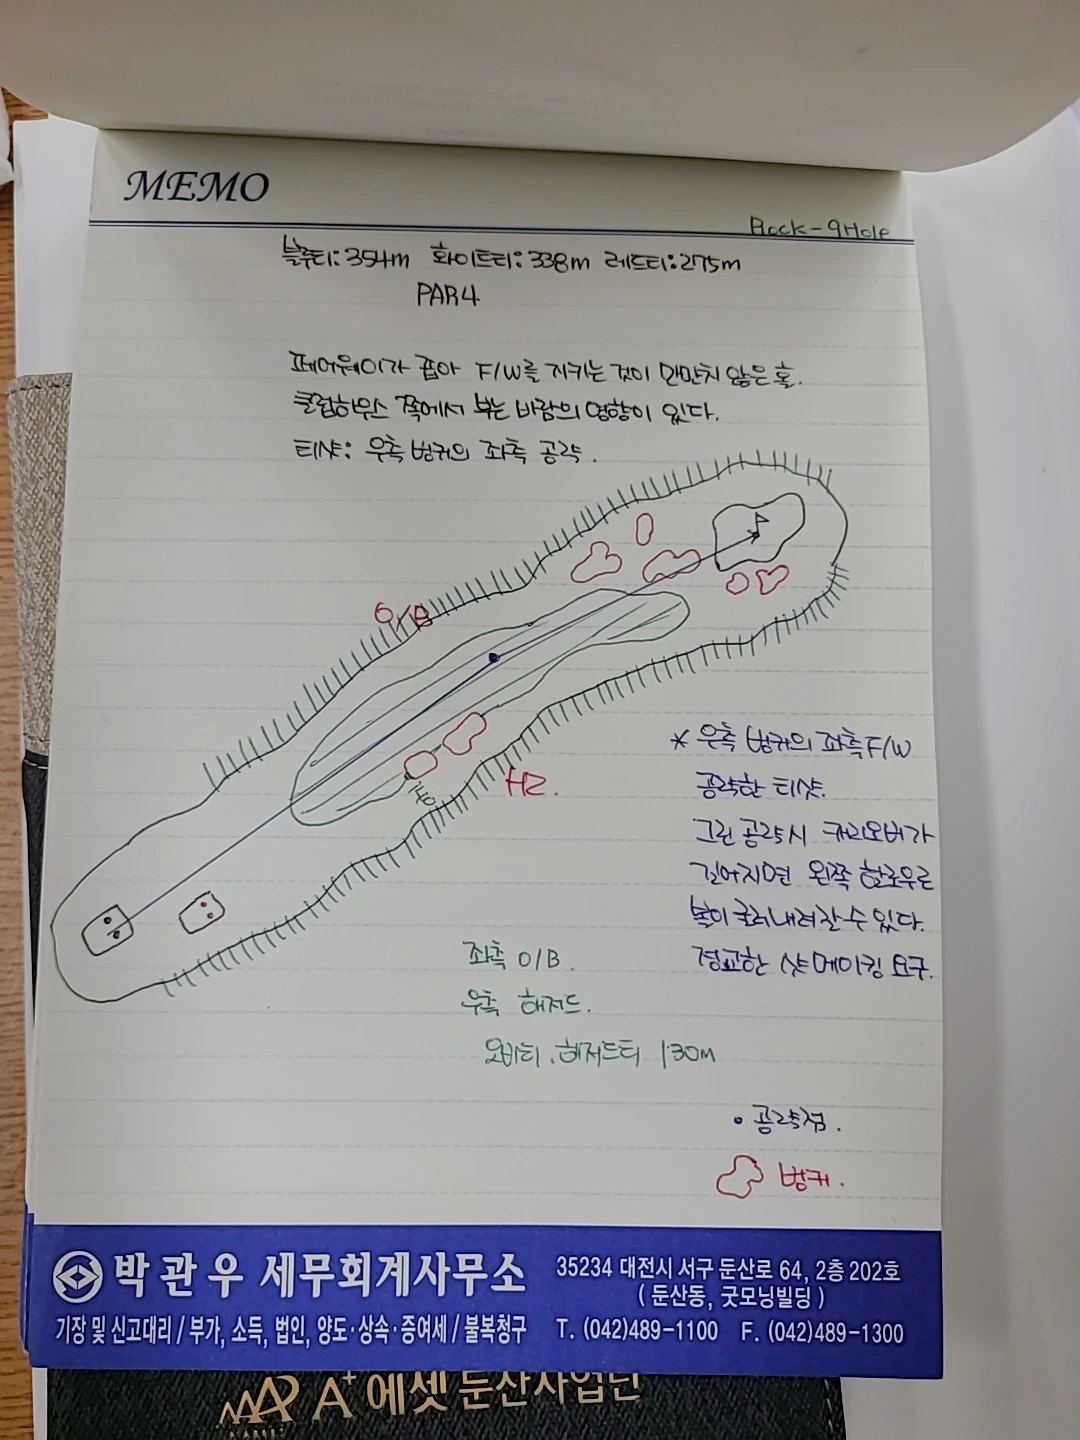 MEMO
Rock-9Hole
블루티:354m 화이트티:338m 레드티:275m
PAR4
페어웨이가 좁아 F/W를 지키는 것이 만만치 않은 홀.
클럽하우스 쪽에서 부는 바람의 영향이 있다.
티샷: 우측 벙커의 좌측 공략.
O/B
HZ.
* 우측 벙커의 좌측 F/W
공략한 티샷.
그린 공략시 캐리오버가
길어지면 왼쪽 할로우로
볼이 굴러내려갈 수 있다.
정교한 샷 메이킹 요구.
좌측 O/B.
우측 해저드.
오비티.해저드티 130m
• 공략점.
벙커.
박관우 세무회계사무소
35234 대전시 서구 둔산로 64, 2층 202호
(둔산동, 굿모닝빌딩)
기장 및 신고대리/부가, 소득, 법인, 양도·상속·증여세/불복청구
T. (042)489-1100 F. (042)489-1300
A+에셋 둔산사업단